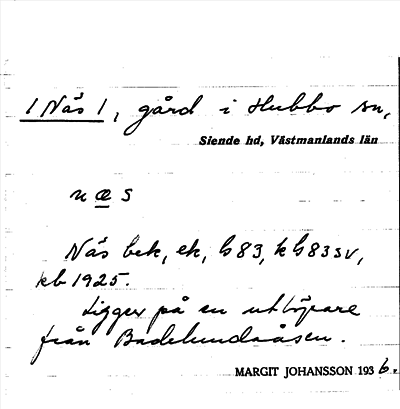 / Näs /, gård i Hubbo sn,
Siende hd, Västmanlands län
næs
Näs bek, ek, G83, kG83sv,
kb 1925.
Ligger på en utlöpare
från Badelundaåsen.
MARGIT JOHANSSON 1936.